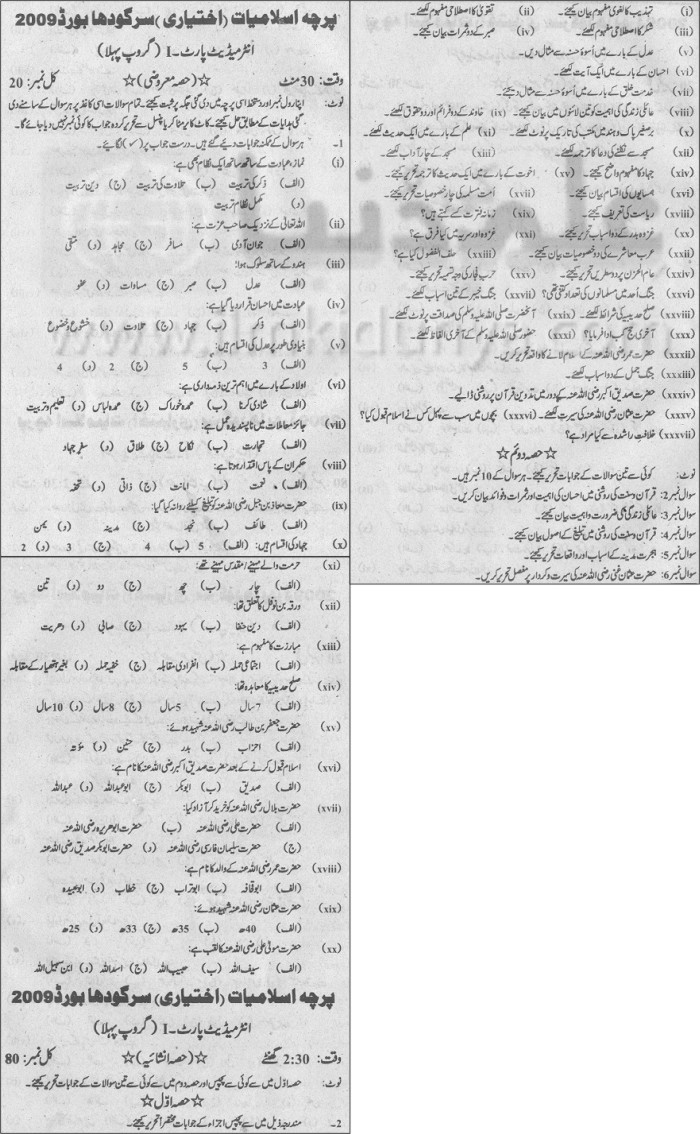 پرچہ اسلامیات (اختیاری) سرگودھا بورڈ 2009
انٹرمیڈیٹ پارٹ-I (گروپ پہلا)
وقت: 30 منٹ ☆(حصہ معروضی)☆ کل نمبر: 20
نوٹ: اپنا رول نمبر اور دستخط اسی پرچہ میں دی گئی جگہ پر ثبت کیجئے۔ تمام سوالات اسی کاغذ پر ہر سوال کے سامنے دی
گئی ہدایات کے مطابق حل کیجئے۔ کاٹ کر یا مٹا کر یا پنسل سے تحریر کردہ جواب کا کوئی نمبر نہیں دیا جائے گا۔
1- ہر سوال کے ممکنہ جوابات دیئے گئے ہیں۔ درست جواب پر (✓) لگائیے۔
(i) نماز، عبادت کے ساتھ ساتھ ایک نظام بھی ہے:
(الف) ذکر کی تربیت (ب) تلاوت کی تربیت (ج) دین تربیت
(د) مکمل نظام تربیت
(ii) اللہ تعالیٰ کے نزدیک صاحب عزت ہے:
(الف) جوان آدمی (ب) مسافر (ج) مجاہد (د) متقی
(iii) ہندہ کے ساتھ سلوک ہوا:
(الف) عدل (ب) صبر (ج) مساوات (د) عفو
(iv) عبادت میں احسان قرار دیا گیا ہے:
(الف) ذکر (ب) جہاد (ج) تلاوت (د) خشوع و خضوع
(v) بنیادی طور پر عدل کی اقسام ہیں:
(الف) 3 (ب) 5 (ج) 2 (د) 4
(vi) اولاد کے بارے میں اہم ترین ذمہ داری ہے:
(الف) شادی کرنا (ب) عمدہ خوراک (ج) عمدہ لباس (د) تعلیم و تربیت
(vii) جائز معاملات میں ناپسندیدہ عمل ہے:
(الف) تجارت (ب) نکاح (ج) طلاق (د) سفر جہاد
(viii) حکمران کے پاس اقتدار ہوتا ہے:
(الف) نعمت (ب) امانت (ج) ذاتی (د) تحفہ
(ix) حضرت معاذ بن جبل رضی اللہ عنہ کو تبلیغ کیلئے روانہ کیا گیا:
(الف) طائف (ب) نجد (ج) مدینہ (د) یمن
(x) جہاد کی اقسام ہیں: (الف) 5 (ب) 4 (ج) 3 (د) 2
(xi) حرمت والے مہینے / مقدس مہینے تھے:
(الف) چار (ب) چھ (ج) دو (د) تین
(xii) ورقہ بن نوفل کا تعلق تھا:
(الف) دین حنفا (ب) یہود (ج) صابی (د) دھریت
(xiii) مبارزت کا مفہوم ہے:
(الف) اجتماعی حملہ (ب) انفرادی مقابلہ (ج) خفیہ حملہ (د) بغیر ہتھیار کے مقابلہ
(xiv) صلح حدیبیہ کا معاہدہ تھا:
(الف) 7 سال (ب) 5 سال (ج) 8 سال (د) 10 سال
(xv) حضرت جعفر بن طالب رضی اللہ عنہ شہید ہوئے:
(الف) احزاب (ب) بدر (ج) حنین (د) موتہ
(xvi) اسلام قبول کرنے کے بعد حضرت صدیق اکبر رضی اللہ عنہ کا نام ہے:
(الف) صدیق (ب) ابوبکر (ج) ابو عبداللہ (د) عبداللہ
(xvii) حضرت بلال رضی اللہ عنہ کو خرید کر آزاد کیا:
(الف) حضرت علی رضی اللہ عنہ (ب) حضرت ابوہریرہ رضی اللہ عنہ
(ج) حضرت سلیمان فارسی رضی اللہ عنہ (د) حضرت ابوبکر صدیق رضی اللہ عنہ
(xviii) حضرت عمر رضی اللہ عنہ کے والد کا نام ہے:
(الف) ابو قحافہ (ب) ابو تراب (ج) خطاب (د) ابو عبیدہ
(xix) حضرت عثمان رضی اللہ عنہ شہید ہوئے:
(الف) 40ھ (ب) 35ھ (ج) 33ھ (د) 25ھ
(xx) حضرت مولیٰ علی رضی اللہ عنہ کا لقب ہے:
(الف) سیف اللہ (ب) حبیب اللہ (ج) اسد اللہ (د) ابن سبیل اللہ
پرچہ اسلامیات (اختیاری) سرگودھا بورڈ 2009
انٹرمیڈیٹ پارٹ-I (گروپ پہلا)
وقت: 2:30 گھنٹے ☆(حصہ انشائیہ)☆ کل نمبر: 80
نوٹ: حصہ اوّل میں سے کوئی سے پچیس اور حصہ دوم میں سے کوئی سے تین سوالات کے جوابات تحریر کیجئے۔
☆ حصہ اوّل ☆
2- مندرجہ ذیل میں سے پچیس اجزاء کے جوابات مختصراً تحریر کیجئے۔
(i) تہذیب کا لغوی مفہوم بیان کیجئے۔ (ii) تقویٰ کا اصطلاحی مفہوم لکھئے۔
(iii) شکر کا اصطلاحی مفہوم لکھئے۔ (iv) صبر کے دو ثمرات بیان کیجئے۔
(v) عدل کے بارے میں اسوۂ حسنہ سے مثال دیں۔
(vi) احسان کے بارے میں ایک آیت لکھئے۔
(vii) خدمت خلق کے بارے میں اسوۂ حسنہ سے مثال دیجئے۔
(viii) عائلی زندگی کی اہمیت کو تین لائنوں میں بیان کیجئے۔ (ix) خاوند کے دو فرائض اور دو حقوق لکھئے۔
(x) برصغیر پاک و ہند میں مکتب کی تاریخ پر نوٹ لکھئے۔ (xi) علم کے بارے میں ایک حدیث لکھئے۔
(xii) مسجد سے نکلنے کی دعا کا ترجمہ لکھئے۔ (xiii) مسجد کے چار آداب لکھئے۔
(xiv) جہاد کا مفہوم واضح کیجئے۔ (xv) اخوت کے بارے میں ایک حدیث کا ترجمہ تحریر کیجئے۔
(xvi) ہمسایوں کی اقسام بیان کیجئے۔ (xvii) امت مسلمہ کی چار خصوصیات تحریر کیجئے۔
(xviii) ریاست کی تعریف کیجئے۔ (xix) زمانہ فترت کسے کہتے ہیں؟
(xx) غزوہ بدر کے دو اسباب تحریر کیجئے۔ (xxi) غزوہ اور سریہ میں کیا فرق ہے؟
(xxii) عرب معاشرے کی دو خصوصیات بیان کیجئے۔ (xxiii) حلف الفضول کیا ہے؟
(xxiv) عام الحزن پر دو سطریں تحریر کیجئے۔ (xxv) حرب فجار کی وجہ تسمیہ تحریر کیجئے۔
(xxvi) جنگ اُحد میں مسلمانوں کی تعداد کتنی تھی؟ (xxvii) جنگ خیبر کے تین اسباب لکھئے۔
(xxviii) صلح حدیبیہ کی شرائط لکھئے۔ (xxix) آنحضرت صلی اللہ علیہ وسلم کی صداقت پر نوٹ لکھئے۔
(xxx) آخری حج کب ادا فرمایا؟ (xxxi) حضور صلی اللہ علیہ وسلم کے آخری الفاظ لکھئے۔
(xxxii) حضرت عمر رضی اللہ عنہ کے اسلام لانے کا واقعہ تحریر کریں۔
(xxxiii) جنگ جمل کے دو اسباب لکھئے۔
(xxxiv) حضرت صدیق اکبر رضی اللہ عنہ کے دور میں تدوین قرآن پر روشنی ڈالیے۔
(xxxv) حضرت عثمان رضی اللہ عنہ کی سیرت لکھئے۔ (xxxvi) بچوں میں سب سے پہلے کس نے اسلام قبول کیا؟
(xxxvii) خلافت راشدہ سے کیا مراد ہے؟
☆ حصہ دوئم ☆
نوٹ: کوئی سے تین سوالات کے جوابات تحریر کیجئے۔ ہر سوال کے 10 نمبر ہیں۔
سوال نمبر 2: قرآن و سنت کی روشنی میں احسان کی اہمیت اور ثمرات و فوائد بیان کریں۔
سوال نمبر 3: عائلی زندگی کی ضرورت و اہمیت بیان کیجئے۔
سوال نمبر 4: قرآن و سنت کی روشنی میں تبلیغ کے اصول بیان کیجئے۔
سوال نمبر 5: ہجرت مدینہ کے اسباب اور واقعات تحریر کیجئے۔
سوال نمبر 6: حضرت عثمان غنی رضی اللہ عنہ کی سیرت و کردار پر مفصل تحریر کریں۔